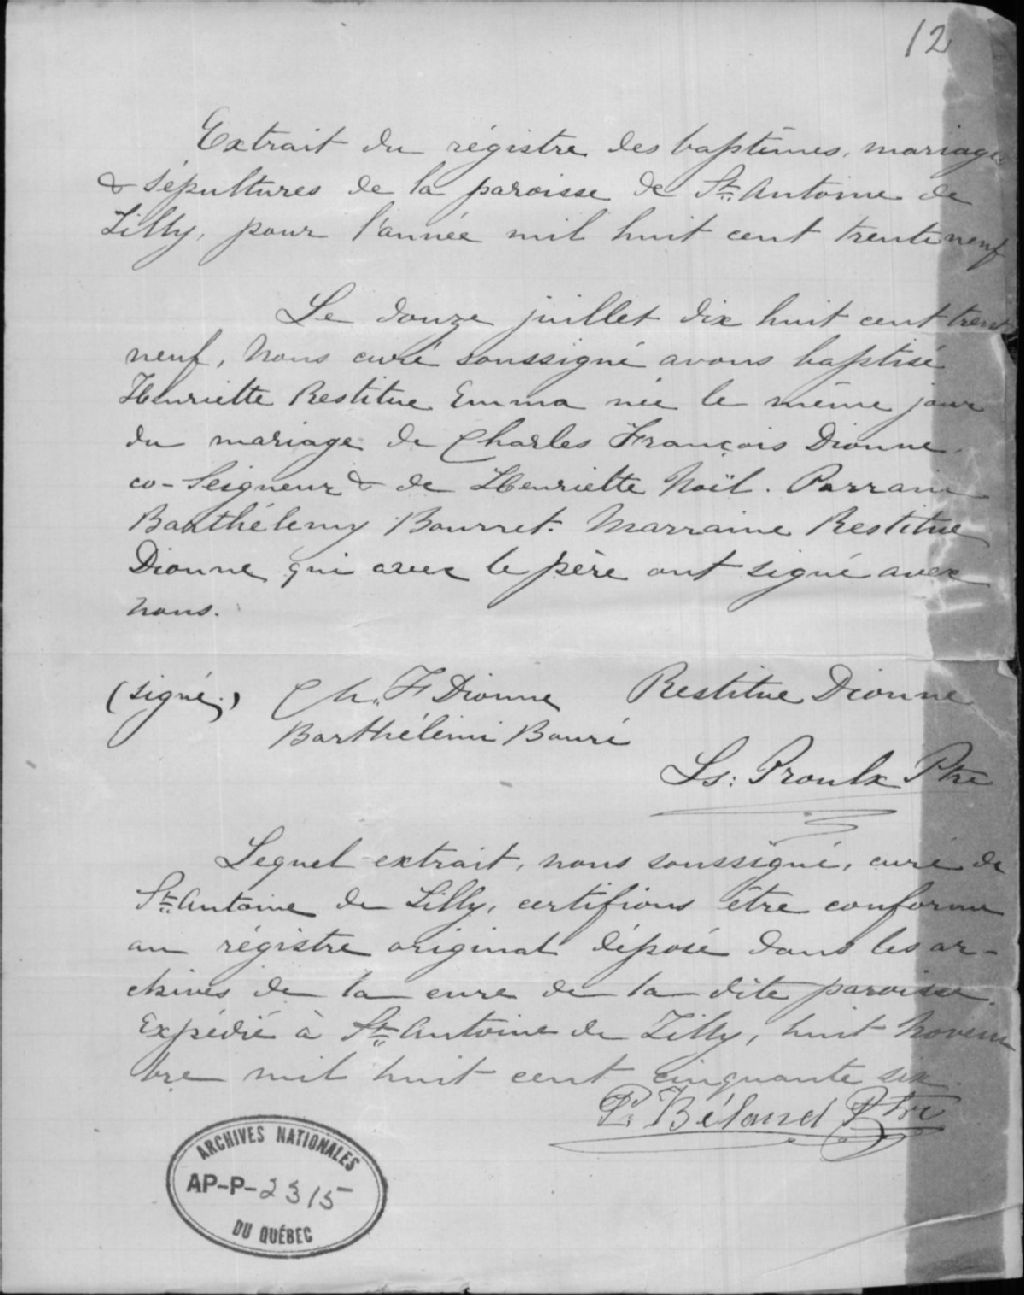 12
Extrait du régistre des baptêmes, mariages
& sépultures de la paroisse de St. Antoine de
Tilly, pour l'année mil huit cent trente neuf
Le douze juillet dix huit cent trente
neuf, Nous curé soussigné avons baptisé
Henriette Restitue Emma née le même jour
du mariage de Charles François Dionne,
co-Seigneur & de Henriette Noël. Parrain
Barthélemy Bourret. Marraine Restitue
Dionne qui avec le père ont signé avec
nous.
(signé.) Ch. F Dionne Restitue Dionne
Barthélimi Bouré
Ls: Proulx Ptre
Lequel extrait, nous soussigné, curé de
St. Antoine de Tilly, certifions être conforme
au régistre original déposé dans les ar-
chives de la cure de la dite paroisse.
Expédié à St. Antoine de Tilly, huit Novem
bre mil huit cent cinquante six
P. Béland Ptre
ARCHIVES NATIONALES
AP-P-2315
DU QUÉBEC